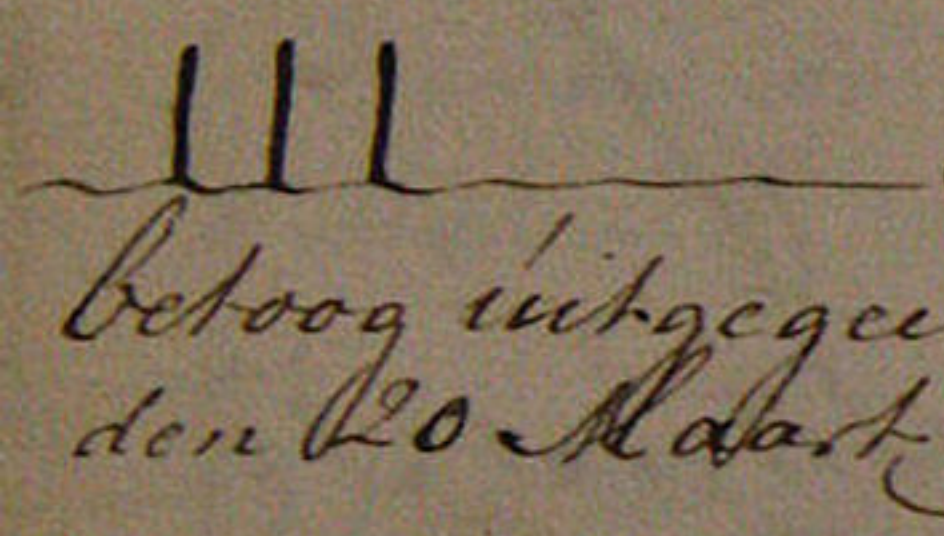 III
betoog uitgegee
den 20 Maart